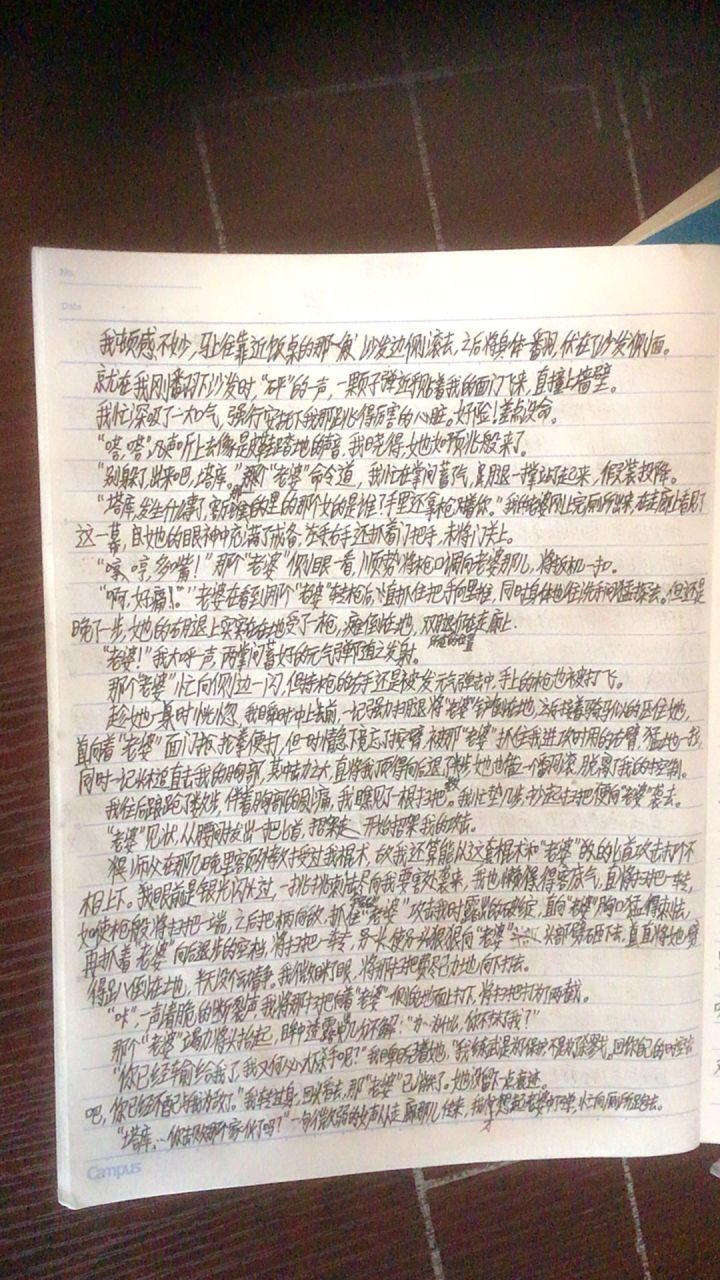 No.
Date
我顿感不妙,马上往靠近饭桌的那一角沙发边侧滚去,之后将身体一番滚,伏在了沙发侧面。
就在我刚番下沙发时,“砰”的一声,一颗子弹近乎贴着我的面门飞来,直撞上墙壁。
我忙深吸了一大口气,强行安抚下我那跳得厉害的心脏。好险!差点没命。
“嗒,嗒”几声听上去像是踏地的声音,我晓得,她也如预兆般来了。
“别躲了,出来吧,塔库。”那个“老婆”命令道,我忙在掌间蓄气,腿一撑站了起来,假装投降。
“塔库,发生什么事了,家里的那个女的是谁?手里还拿枪对着你。”我的老婆刚上完厕所出来,在走廊上看见了
这一幕,且她的眼神中充满了戒备,右手还抓着门把手,未将门关上。
“哼,哼,多嘴!”那个“老婆”侧眼一看,顺势将枪口调向老婆那儿,将扳机一扣。
“啊,好痛!”老婆在看到那个“老婆”转枪后,直抓住把手向里拉,同时身体也往洗手间猛探去。但还是
晚了一步,她的右腿上实实在在地受了一枪,瘫倒在地,双腿仍在走廊上。
“老婆!”我大呼一声,两掌间蓄好的元气弹随之发射。
那个“老婆”忙向侧边一闪,但持枪的右手还是被一发元气弹击中,手上的枪也被打飞。
趁她一时恍惚,我瞬时冲上去前,一记强力扫腿将“老婆”绊倒在地,之后接着骑马似的压住她,
直向着“老婆”面门抡拳便打,但一时情急下竟忘了按臂,被那“老婆”抓住我进攻时用的右臂,猛地一拉,
同时一记头槌直击我的胸部,其冲劲之大,直将我顶得向后退了步,她也借一个番滚,脱离了我的控制。
我往后踉跄了数步,伴着胸部的剧痛,我瞟见了一根扫把。我忙垫几步,抄起扫把便向“老婆”袭去。
“老婆”见状,从腰间拔出一把匕首,开始招架我的攻击。
师父在那几晚里额外教授过我棍术,故我还算能以这套棍术和“老婆”的匕首攻击打个不
相上下。我眼前是银光闪过,一挑一刺尽向我要害处袭来,我也懒得客气,直将扫把一转,
如使枪般将扫把一端,之后把柄向敌,抓住“老婆”攻击我时露出的破绽,直向“老婆”胸口猛得刺去,
再趁着“老婆”向后退步的空档,将扫把一转,狠狠向“老婆”头部劈砸下去,直直将她劈
得趴倒在地,半天没个动静。我微眯了眼,将那扫把尽力地向下打去。
“咔”,一声清脆的断裂声,我将那扫把向着“老婆”一侧的地面上打下,将扫把打为了两截。
那个“老婆”竭力将头抬起,眼中透露出几分不解:“为什么,你不杀我?”
“你已经输给我了,我又何必下杀手呢?”我瞅着她,“我练武是为保护,不是为了杀戮。回你自己的
吧,你已经不配与我为敌了。”我转过身,回头看去,那“老婆”已消失了。她没留下一点痕迹。
“塔库…你击败那个家伙了吗?”一句微弱的女声从走廊那儿传来,我才想起老婆中了弹,忙向厕所跑去。
Campus